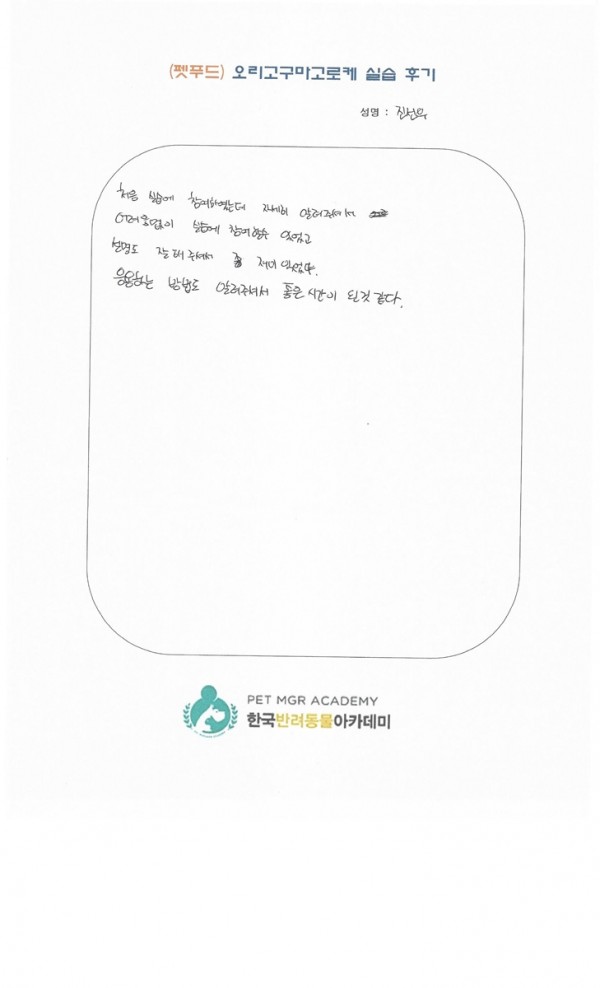 (펫푸드) 오리고구마고로케 실습 후기
성명 :
처음 실습에 참여하였는데 자세히 알려주셔서
어려움없이 실습에 참여할수 있었고
설명도 잘 해 주셔서 재미 있었다.
응용하는 방법도 알려주셔서 좋은 시간이 된것 같다.
PET MGR ACADEMY
한국반려동물아카데미